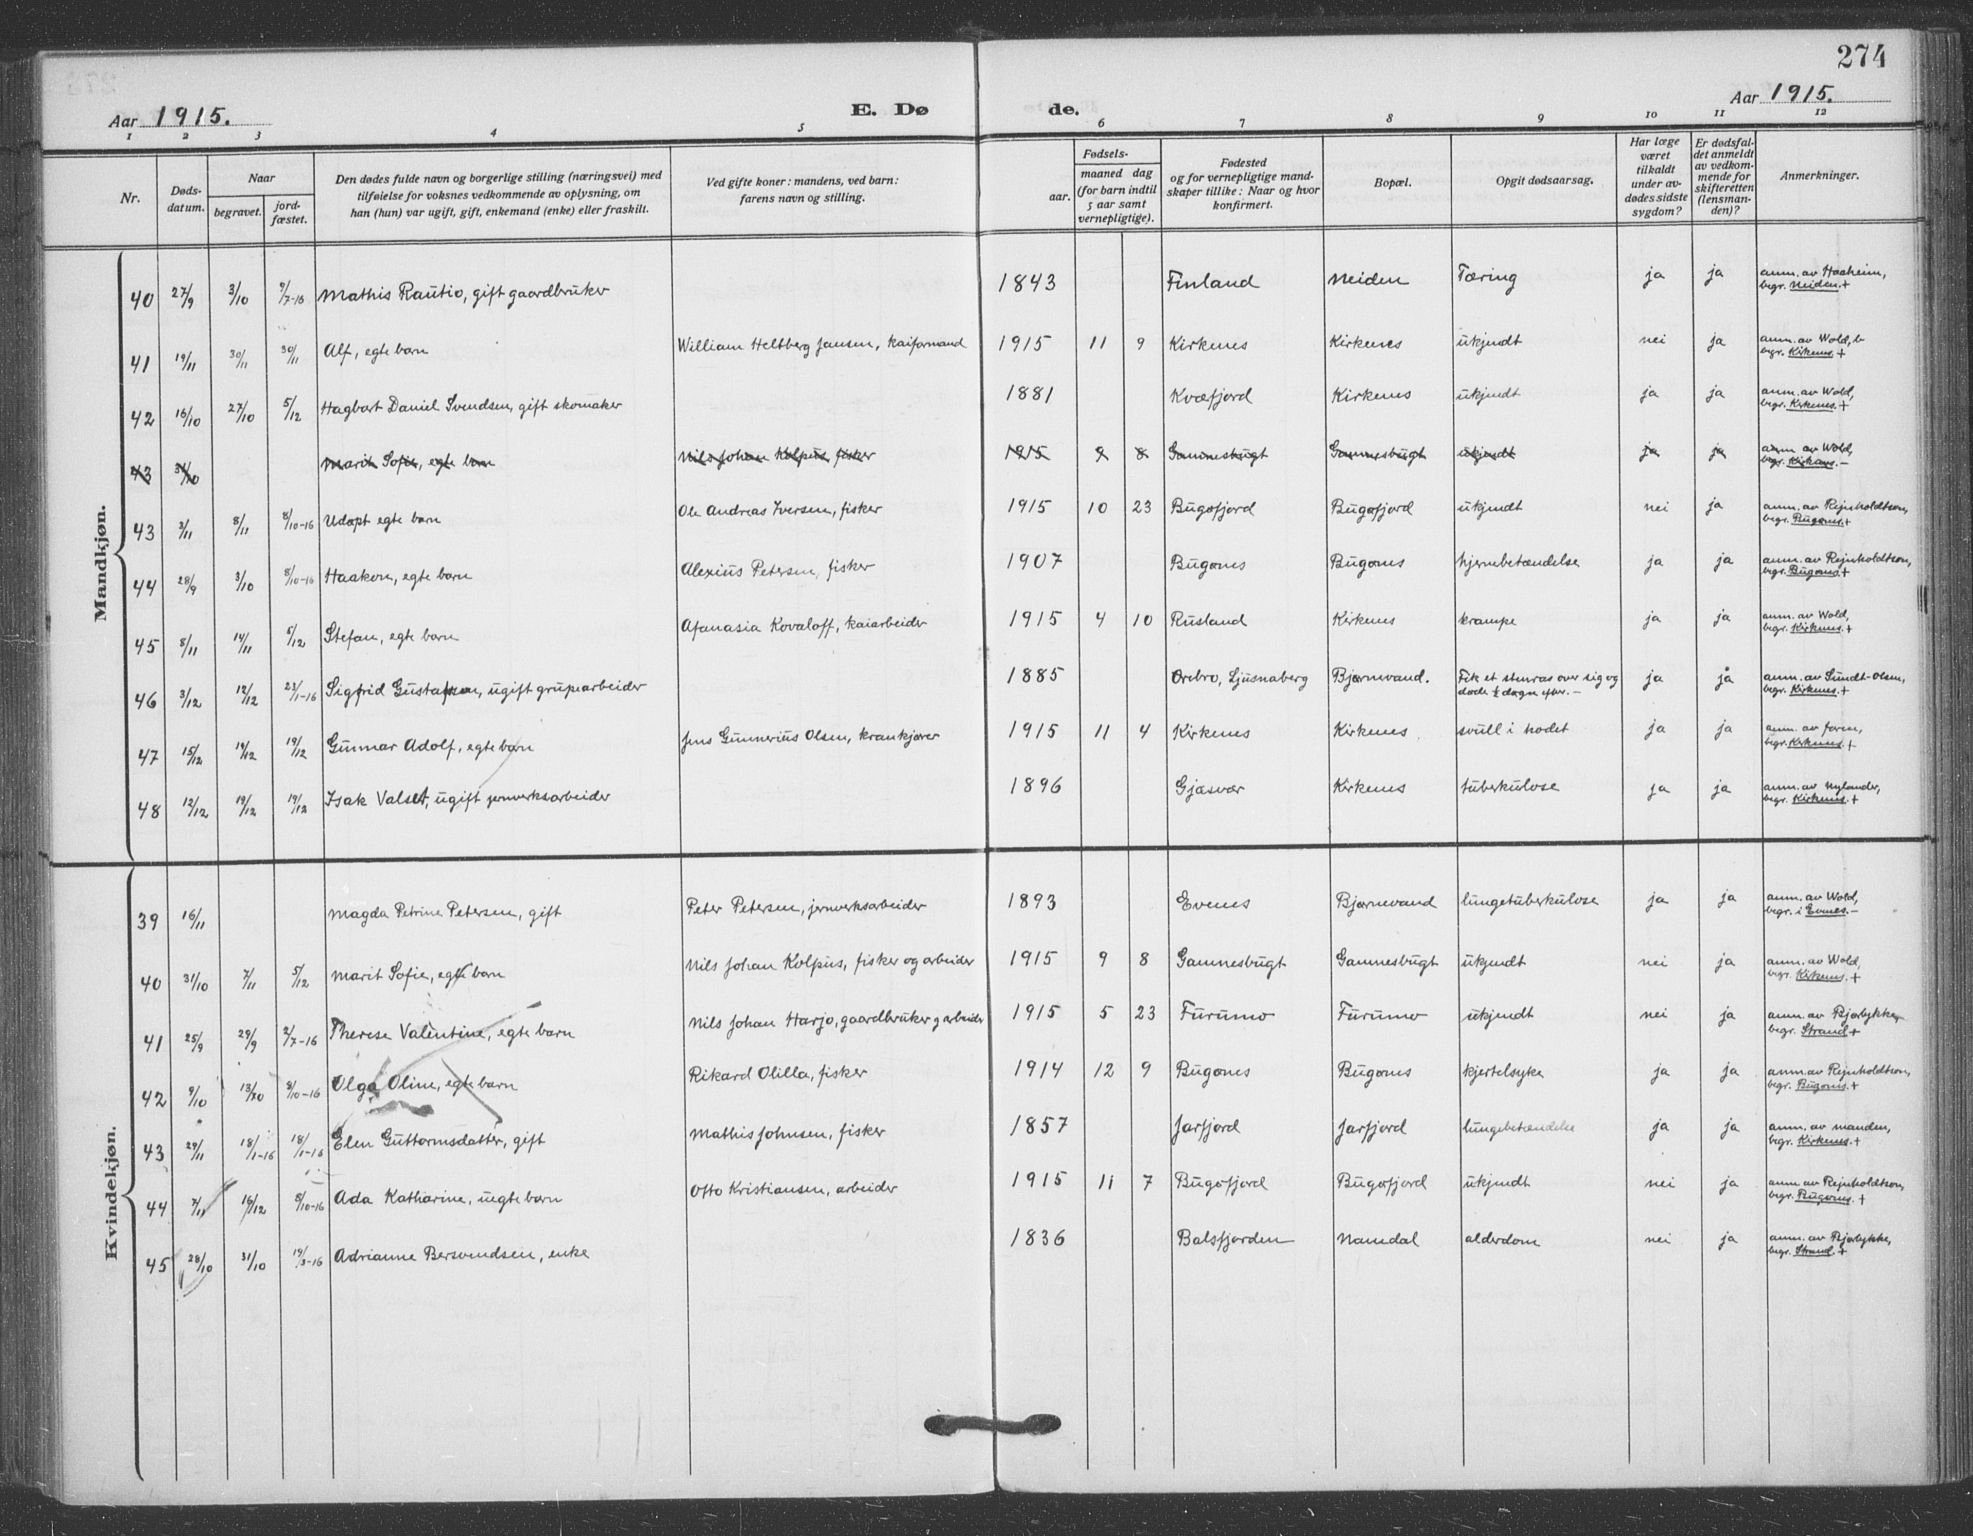 274
Aar 1915.
E. Dø
de.
Aar 1915.
1 2 3 4 5 6 7 8 9 10 11 12
Nr.
Døds-
datum.
Naar
begravet.
jord-
fæstet.
Den dødes fulde navn og borgerlige stilling (næringsvei) med
tilføielse for voksnes vedkommende av oplysning, om
han (hun) var ugift, gift, enkemand (enke) eller fraskilt.
Ved gifte koner: mandens, ved barn:
farens navn og stilling.
Fødsels-
aar.
maaned dag
(for barn indtil
5 aar samt
vernepligtige).
Fødested
og for vernepligtige mand-
skaper tillike: Naar og hvor
konfirmert.
Bopæl.
Opgit dødsaarsag.
Har læge
været
tilkaldt
under av-
dødes sidste
sygdom?
Er dødsfal-
det anmeldt
av vedkom-
mende for
skifteretten
(lensman-
den)?
Anmerkninger.
Mandkjøn.
40 27/9 3/10 9/7-16 Mathis Rautio, gift gaardbruker 1843 Finland Neiden Tæring ja ja anm. av Haaheim,
begr. Neiden.+
41 19/11 30/11 30/11 Alf, egte barn William Heltberg Jansen, kaiformand 1915 11 9 Kirkenes Kirkenes ukjendt nei ja anm. av Wold, b
begr. Kirkenes.+
42 16/10 27/10 5/12 Hagbart Daniel Svendsen, gift skomaker 1881 Kvæfjord Kirkenes ukjendt ja ja anm. av Wold,
begr. Kirkenes.+
43 31/10 Marit Sofie, egte barn Nils Johan Kolpus, fisker 1915 9 8 Gamnesbugt Gamnesbugt ukjendt ja ja anm av Wold,
begr. Kirkenes.-
43 3/11 8/11 8/10-16 Udøpt egte barn Ole Andreas Iversen, fisker 1915 10 23 Bugøfjord Bugøfjord ukjendt nei ja anm. av Rejnholdtsen,
begr. Bugønes+
44 28/9 3/10 8/10-16 Haakon, egte barn Alexius Petersen, fisker 1907 Bugønes Bugønes hjernebetændelse ja ja anm. av Rejnholdtsen,
begr. Bugønes+
45 8/11 14/11 5/12 Stefan, egte barn Afanasia Kovaloff, kaiarbeider 1915 4 10 Rusland Kirkenes krampe ja ja anm. av Wold,
begr. Kirkenes.+
46 3/12 12/12 23/1-16 Sigfrid Gustafsson, ugift grupearbeider 1885 Örebro, Ljusnaberg Bjørnevand. Fik et stenras over sig og
døde ½ døgn efter.- ja ja anm. av Sundt-Olsen,
begr. Kirkenes.+
47 15/12 19/12 19/12 Gunnar Adolf, egte barn Jens Gunnerius Olsen, krankjører 1915 11 4 Kirkenes Kirkenes svull i hodet ja ja anm. av faren,
begr. Kirkenes.+
48 12/12 19/12 19/12 Isak Valset, ugift jernverksarbeider 1896 Gjæsvær Kirkenes tuberkulose ja ja anm. av Nylander,
begr. Kirkenes.+
Kvindekjøn.
39 16/11 Magda Petrine Petersen, gift Peter Petersen, jernverksarbeider 1893 Evenes Bjørnevand lungetuberkulose ja ja anm. av Wold,
begr. i Evenes.-
40 31/10 7/11 5/12 Marit Sofie, egte barn Nils Johan Kolpus, fisker og arbeider 1915 9 8 Gamnesbugt Gamnesbugt ukjendt nei ja anm. av Wold,
begr. Kirkenes.+
41 25/9 29/9 2/7-16 Therese Valentine, egte barn Nils Johan Harjo, gaardbruker g arbeider 1915 5 23 Furumo Furumo ukjendt nei ja anm. av Bjørlykke,
begr. Strand+
42 9/10 13/10 8/10-16 Olga Oline, egte barn Rikard Olilla, fisker 1914 12 9 Bugønes Bugønes kjertelsyke ja ja anm. av Rejnholdtsen,
begr. Bugønes+
43 29/11 18/1-16 18/1-16 Elen Guttormsdatter, gift Mathis Johnsen, fisker 1857 Jarfjord Jarfjord lungebetændelse ja ja anm. av manden,
begr. Kirkenes.+
44 7/11 16/12 8/10-16 Ada Katharine, uegte barn Otto Kristiansen, arbeider 1915 11 7 Bugøfjord Bugøfjord ukjendt nei ja anm av Rejnholdtsen,
begr. Bugønes.+
45 28/10 31/10 19/3-16 Adrianne Bersvendsen, enke 1836 Balsfjorden Namdal alderdom nei ja anm. av Bjørlykke,
begr. Strand.+